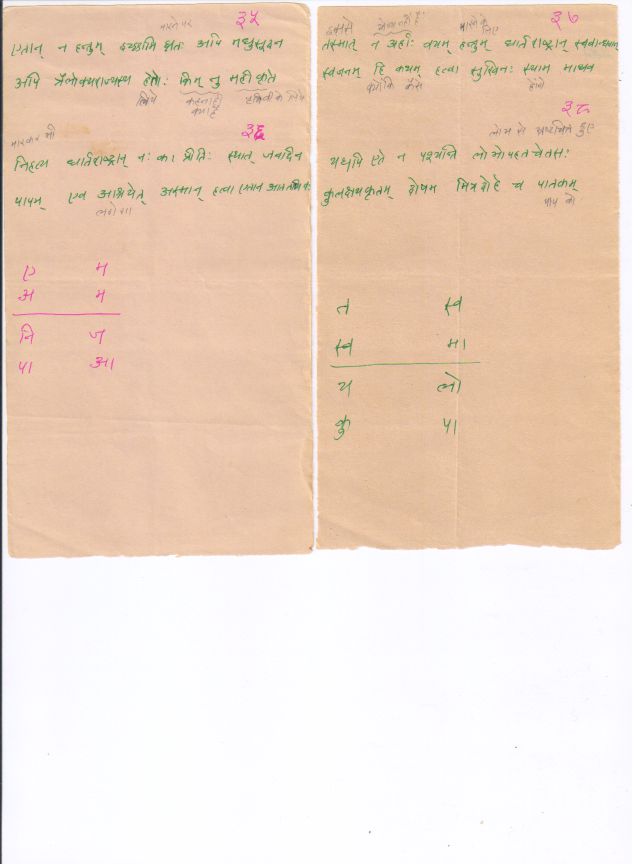 मारने पर ३५
एतान् न हन्तुम् इच्छामि घ्नतः अपि मधुसूदन
अपि त्रैलोक्यराज्यस्य हेतोः किम् नु महीकृते
लिये कहना ही क्या है पृथिवी के लिये
मारकर भी ३६
निहत्य धार्तराष्ट्रान् नः का प्रीतिः स्यात् जनार्दन
पापम् एव आश्रयेत् अस्मान् हत्वा एतान् आततायिनः
लगेगा
ए म
अ म
नि ज
पा आ
इससे योग्य नहीं हैं मारने के लिए ३७
तस्मात् न अर्हाः वयम् हन्तुम् धार्तराष्ट्रान् स्वबान्धवान्
स्वजनम् हि कथम् हत्वा सुखिनः स्याम माधव
क्योंकि कैसे होंगे
३८
लोभ से भ्रष्टचित्त हुए
यद्यपि एते न पश्यन्ति लोभोपहतचेतसः
कुलक्षयकृतम् दोषम् मित्रद्रोहे च पातकम्
पाप को
त स्व
स्व मा
य लो
कु पा